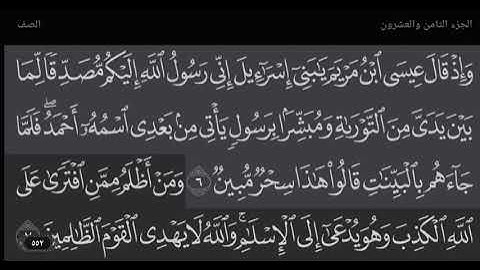 الجزء الثامن والعشرون الصف
وَإِذْ قَالَ عِيسَى ٱبْنُ مَرْيَمَ يَـٰبَنِىٓ إِسْرَٰٓءِيلَ إِنِّى رَسُولُ ٱللَّهِ إِلَيْكُم مُّصَدِّقًا لِّمَا
بَيْنَ يَدَىَّ مِنَ ٱلتَّوْرَىٰةِ وَمُبَشِّرًۢا بِرَسُولٍ يَأْتِى مِنۢ بَعْدِى ٱسْمُهُۥٓ أَحْمَدُ ۖ فَلَمَّا
جَآءَهُم بِٱلْبَيِّنَـٰتِ قَالُوا۟ هَـٰذَا سِحْرٌ مُّبِينٌ ٦ وَمَنْ أَظْلَمُ مِمَّنِ ٱفْتَرَىٰ عَلَى
ٱللَّهِ ٱلْكَذِبَ وَهُوَ يُدْعَىٰٓ إِلَى ٱلْإِسْلَـٰمِ ۚ وَٱللَّهُ لَا يَهْدِى ٱلْقَوْمَ ٱلظَّـٰلِمِينَ ٧
٥٥٢